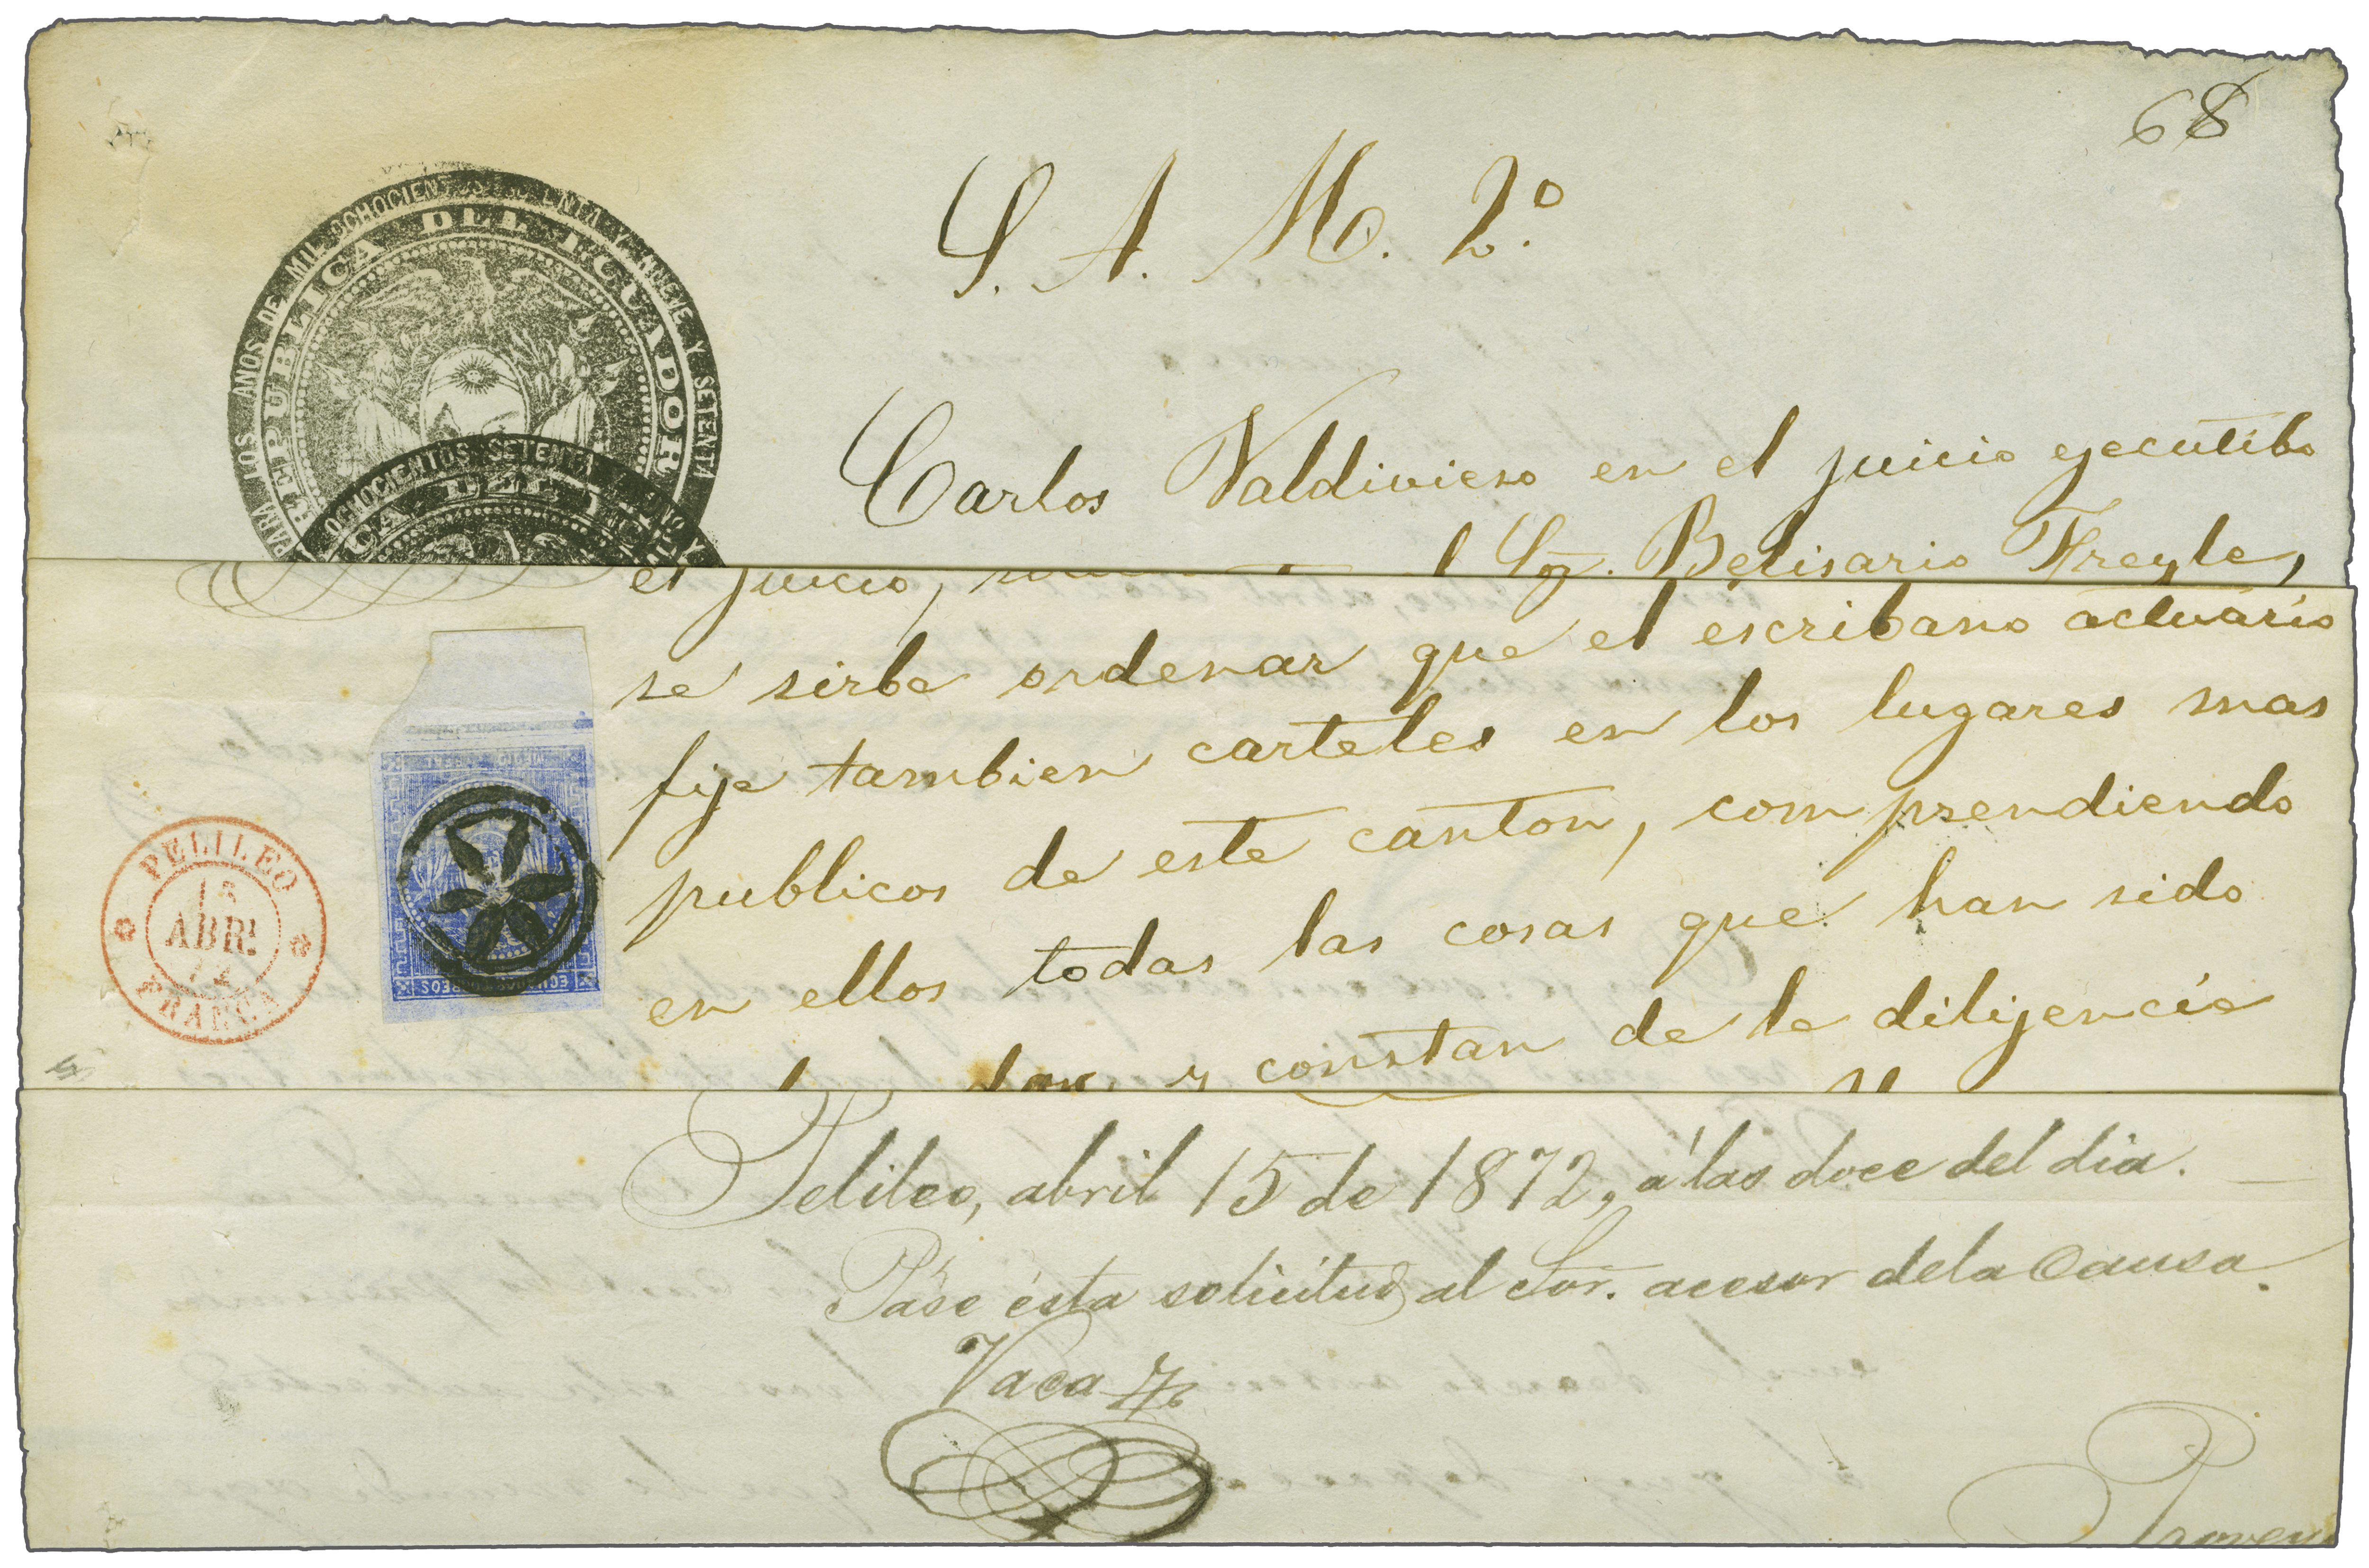 68
S. A. M. 2º.
PARA LOS AÑOS DE MIL OCHOCIENTOS SESENTA Y NUEVE Y SETENTA
REPUBLICA DEL ECUADOR
OCHOCIENTOS SETENTA
Carlos Valdivieso en el juicio ejecutibo
Belisario Freyle,
el juicio,
se sirba ordenar que el escribano actuario
fije tambien carteles en los lugares mas
publicos de este canton, comprendiendo
en ellos todas las cosas que han sido
y constan de la dilijencia
MEDIO REAL
ECUADOR CORREOS
PELILEO
15
ABRL
72
FRANCA
Pelileo, abril 15 de 1872, á las doce del dia.
Páse ésta solicitud al Sor. acesor dela Causa.
Vaca